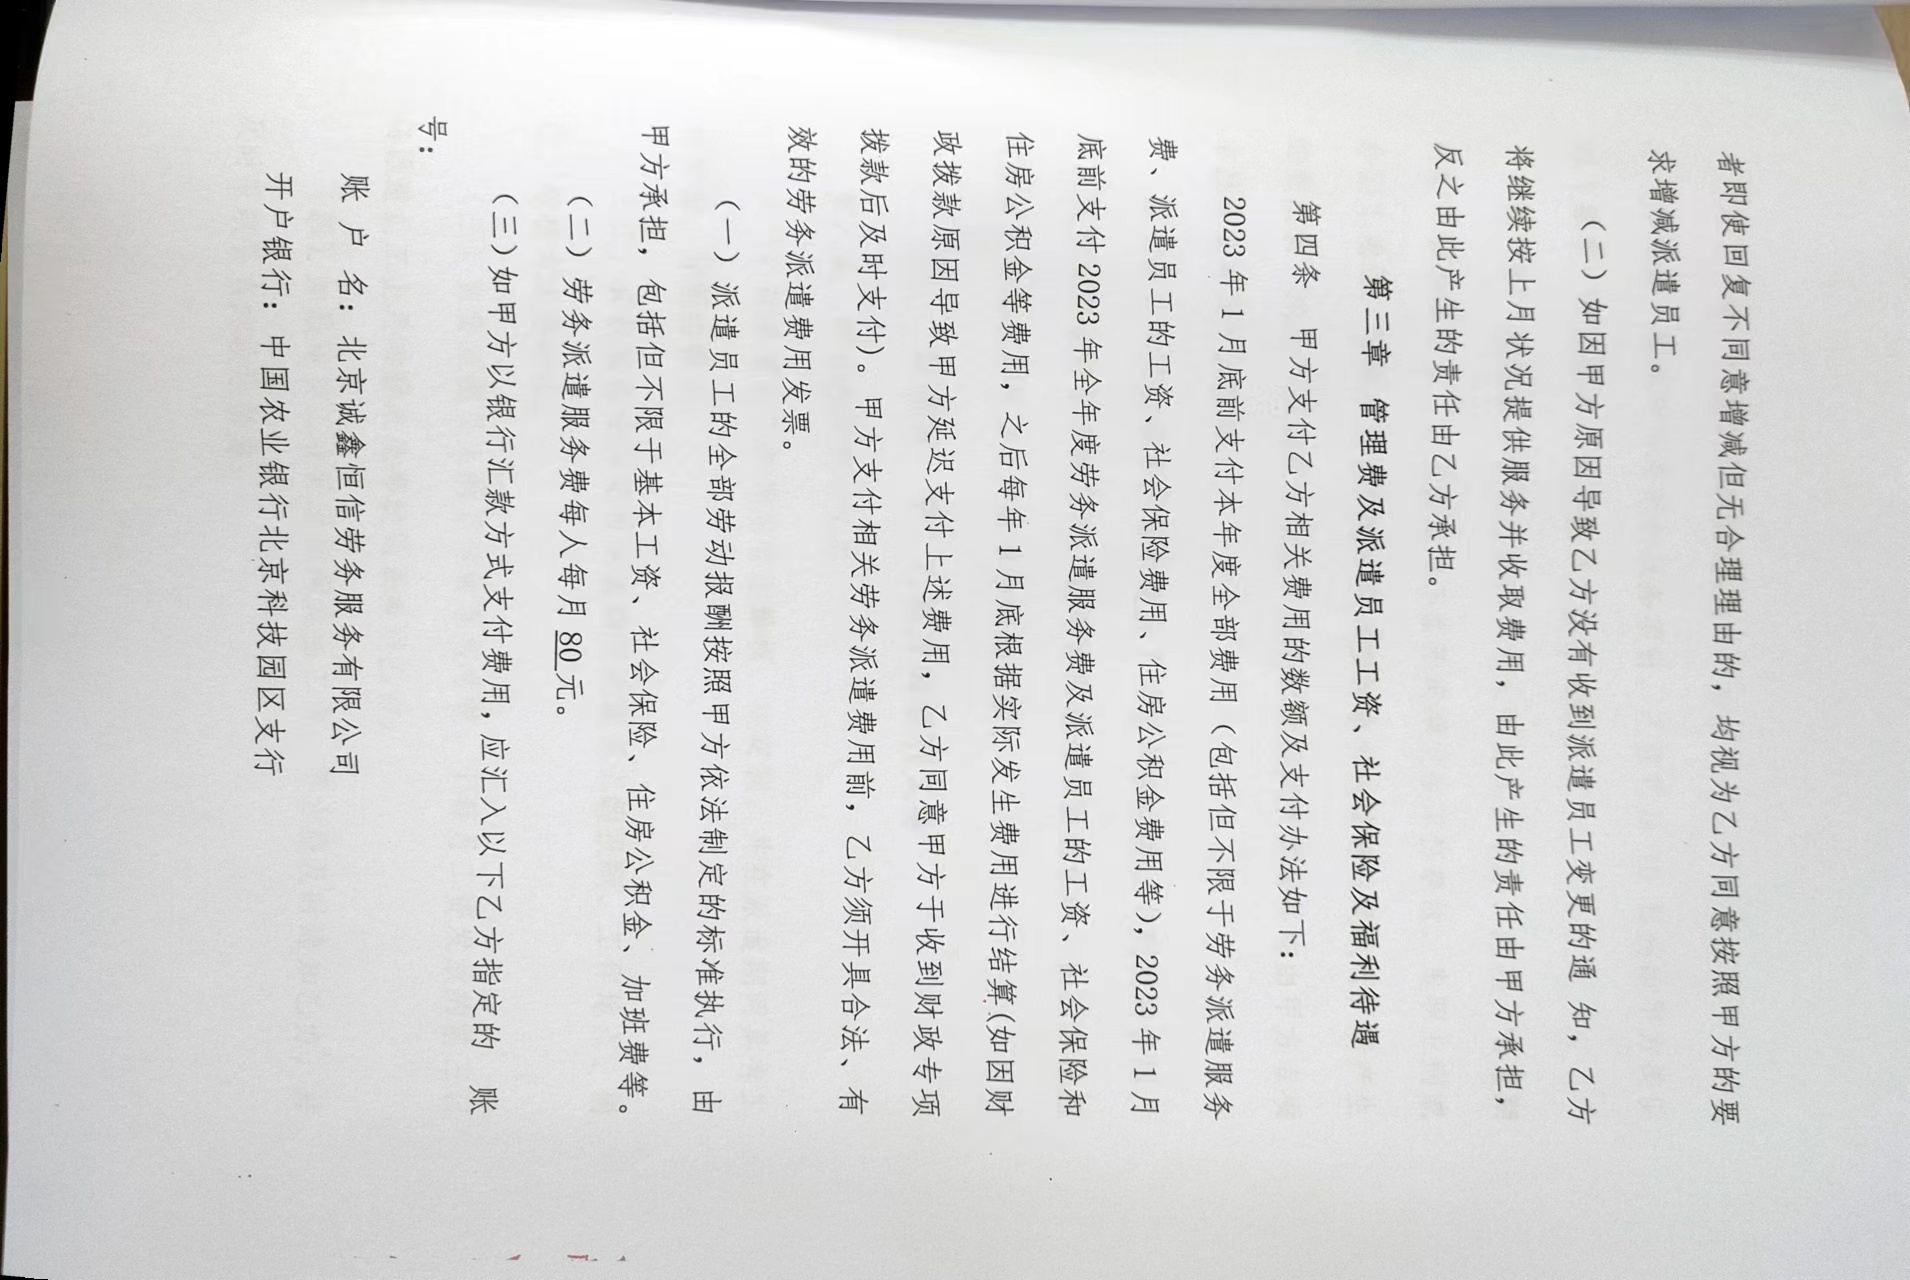 者即使回复不同意增减但无合理理由的，均视为乙方同意按照甲方的要
求增减派遣员工。
（二）如因甲方原因导致乙方没有收到派遣员工变更的通 知，乙方
将继续按上月状况提供服务并收取费用，由此产生的责任由甲方承担，
反之由此产生的责任由乙方承担。
第三章 管理费及派遣员工工资、社会保险及福利待遇
第四条 甲方支付乙方相关费用的数额及支付办法如下：
2023 年 1 月底前支付本年度全部费用（包括但不限于劳务派遣服务
费、派遣员工的工资、社会保险费用、住房公积金费用等），2023 年 1 月
底前支付 2023 年全年度劳务派遣服务费及派遣员工的工资、社会保险和
住房公积金等费用，之后每年 1 月底根据实际发生费用进行结算（如因财
政拨款原因导致甲方延迟支付上述费用，乙方同意甲方于收到财政专项
拨款后及时支付）。甲方支付相关劳务派遣费用前，乙方须开具合法、有
效的劳务派遣费用发票。
（一）派遣员工的全部劳动报酬按照甲方依法制定的标准执行，由
甲方承担，包括但不限于基本工资、社会保险、住房公积金、加班费等。
（二）劳务派遣服务费每人每月 80 元。
（三）如甲方以银行汇款方式支付费用，应汇入以下乙方指定的 账
号：
账 户 名：北京诚鑫恒信劳务服务有限公司
开户银行：中国农业银行北京科技园区支行